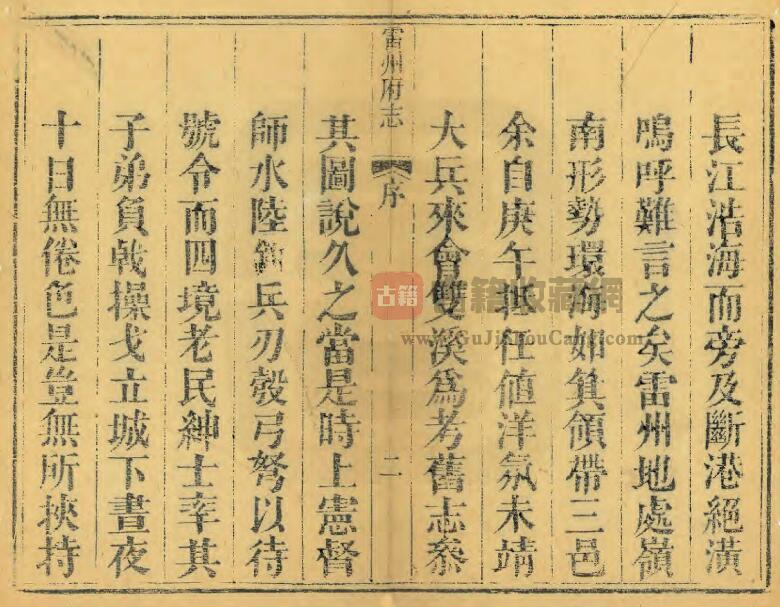 長江浩海而旁及斷港絕潢
嗚呼難言之矣雷州地處嶺
南形勢環海如箕領帶三邑
余自庚午抵任值洋氛未靖
大兵來會雙溪為考舊志叅
雷州府志 序 二
其圖說久之當是時上憲督
師水陸 兵刃彀弓弩以待
號令而四境老民紳士率其
子弟負戟操戈立城下晝夜
十日無倦色是豈無所挾持
古籍 古籍收藏網
www.GuJiShouCang.com